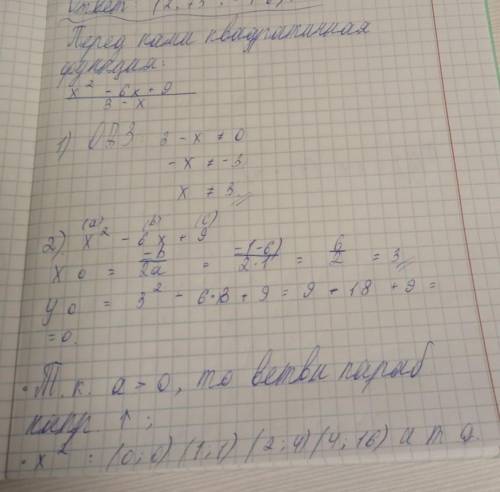 Ответ
Перед нами квадратичная
функция:
x² - 6x + 9
3 - x
1) ОДЗ 3 - x ≠ 0
-x ≠ -3
x ≠ 3
(a) (b) (c)
2) x² - 6x + 9
x0 = -b/2a = -(-6)/2·1 = 6/2 = 3
y0 = 3² - 6·3 + 9 = 9 - 18 + 9 =
= 0.
· Т.к. a > 0, то ветви параб
напр. ↑;
· x² : (0;0) (1;1) (2;4) (4;16) и т.д.